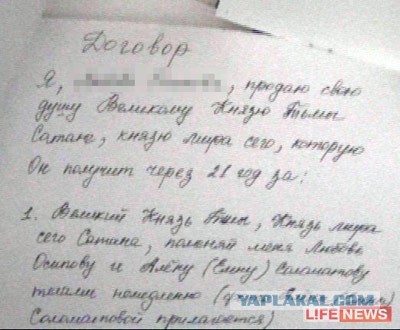 Договор
Я, , продаю свою
душу Великому Князю Тьмы
Сатане, князю мира сего, которую
Он получит через 21 год за:
1. Великий Князь Тьмы, Князь мира
сего Сатана, поменяй меня Любовь
Осипову и Алёну (Елену) Соломатову
телами немедленно
YAPLAKAL.COM
Соломатовой прилагается)
LIFENEWS